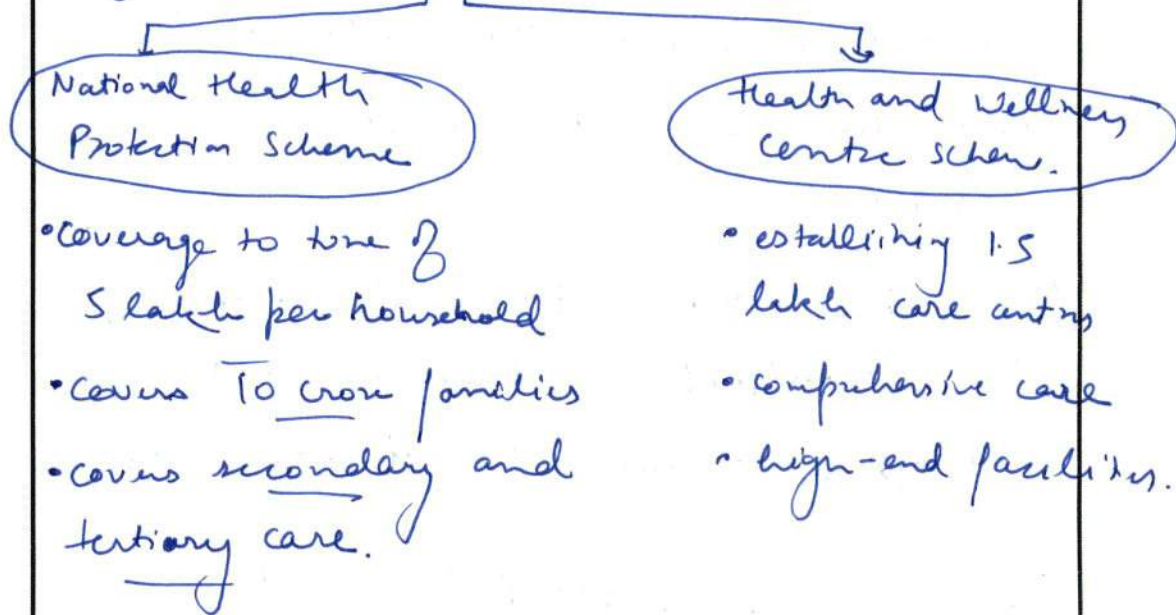 National Health
Protection Scheme
• coverage to tune of
5 lakh per household
• covers 10 crore families
• covers secondary and
tertiary care.
Health and Wellness
Centre Schem.
• establishing 1.5
lakh care centres
• comprehensive care
• high-end facilities.